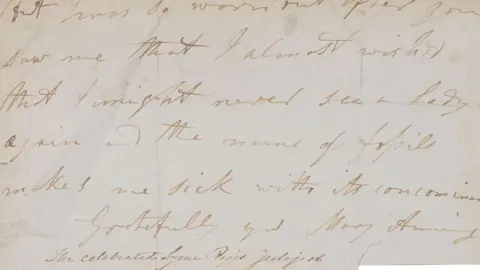 but I was so worn out after you
saw me that I almost wished
that I might never see a Lady
again and the name of fossils
makes me sick with its
Gratefully yrs Mary Anning
The celebrated Lyme Regis Geologist